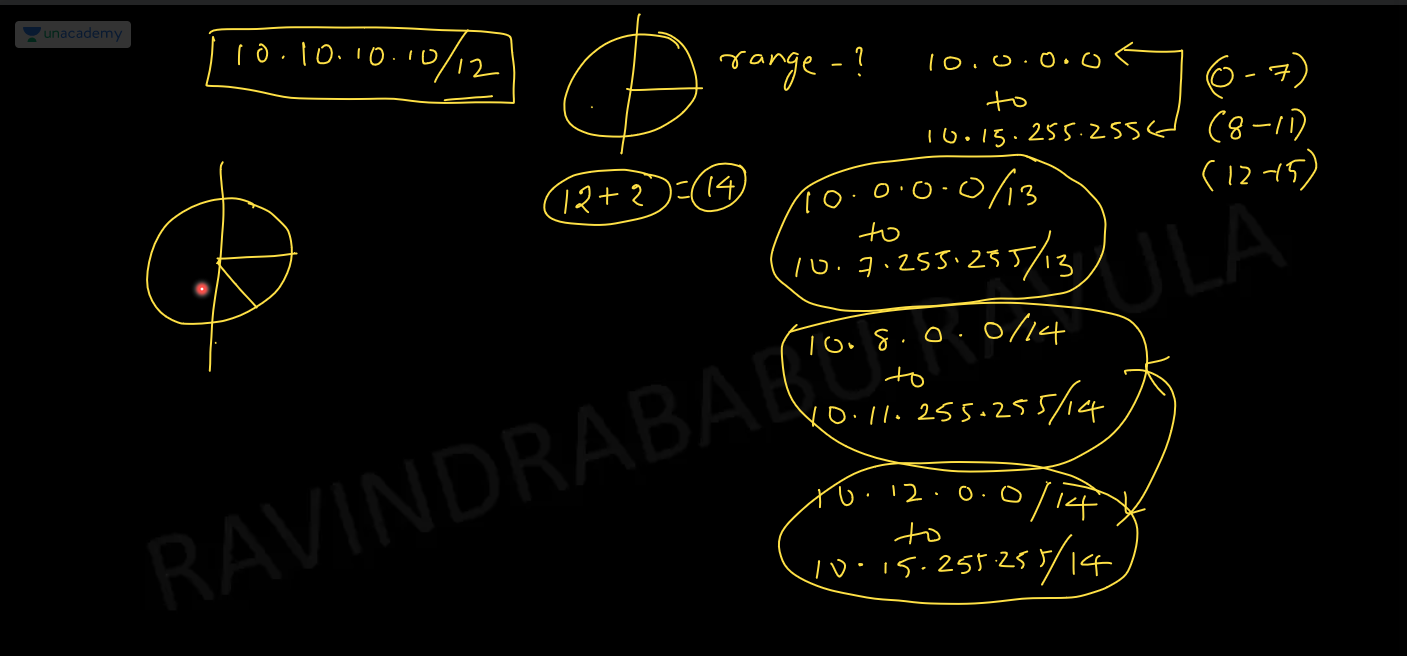 unacademy
10.10.10.10/12
range - ?
10.0.0.0
to
10.15.255.255
(0-7)
(8-11)
(12-15)
12+2 = 14
10.0.0.0/13
to
10.7.255.255/13
10.8.0.0/14
to
10.11.255.255/14
10.12.0.0/14
to
10.15.255.255/14
RAVINDRABABU RAVULA